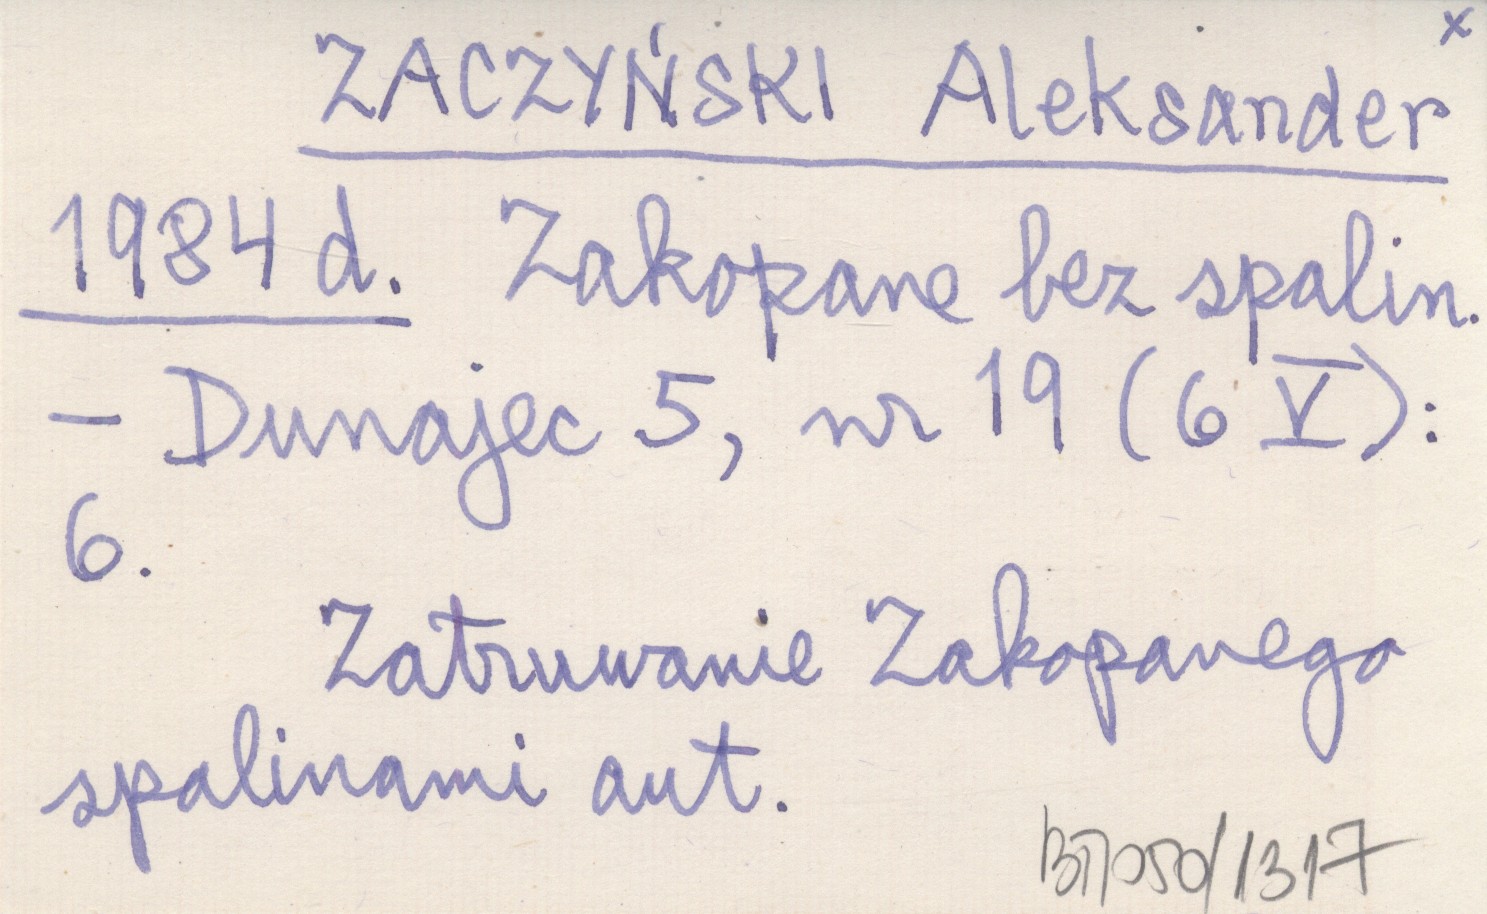 x
ZACZYŃSKI Aleksander
1984 d. Zakopane bez spalin.
– Dunajec 5, nr 19 (6 V):
6.
Zatruwanie Zakopanego
spalinami aut.
/1317